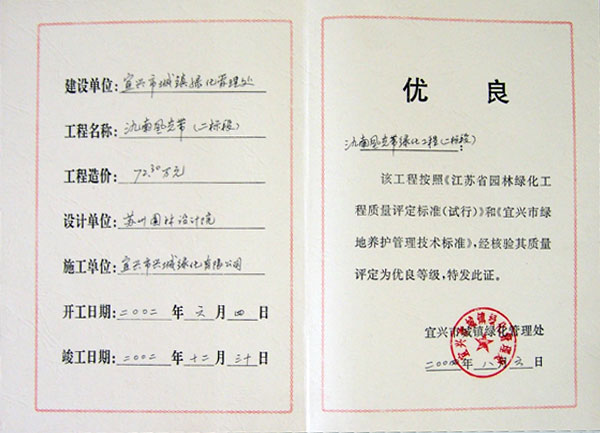 建设单位:宜兴市城镇绿化管理处
工程名称:氿南风光带(二标段)
工程造价:72.30万元
设计单位:苏州园林设计院
施工单位:宜兴市兴城绿化有限公司
开工日期:二00二年六月四日
竣工日期:二00二年十二月三十日
优良
氿南风光带绿化工程(二标段):
该工程按照《江苏省园林绿化工
程质量评定标准(试行)》和《宜兴市绿
地养护管理技术标准》,经核验其质量
评定为优良等级,特发此证。
宜兴市城镇绿化管理处
年八月六日
宜兴市城镇绿化管理处